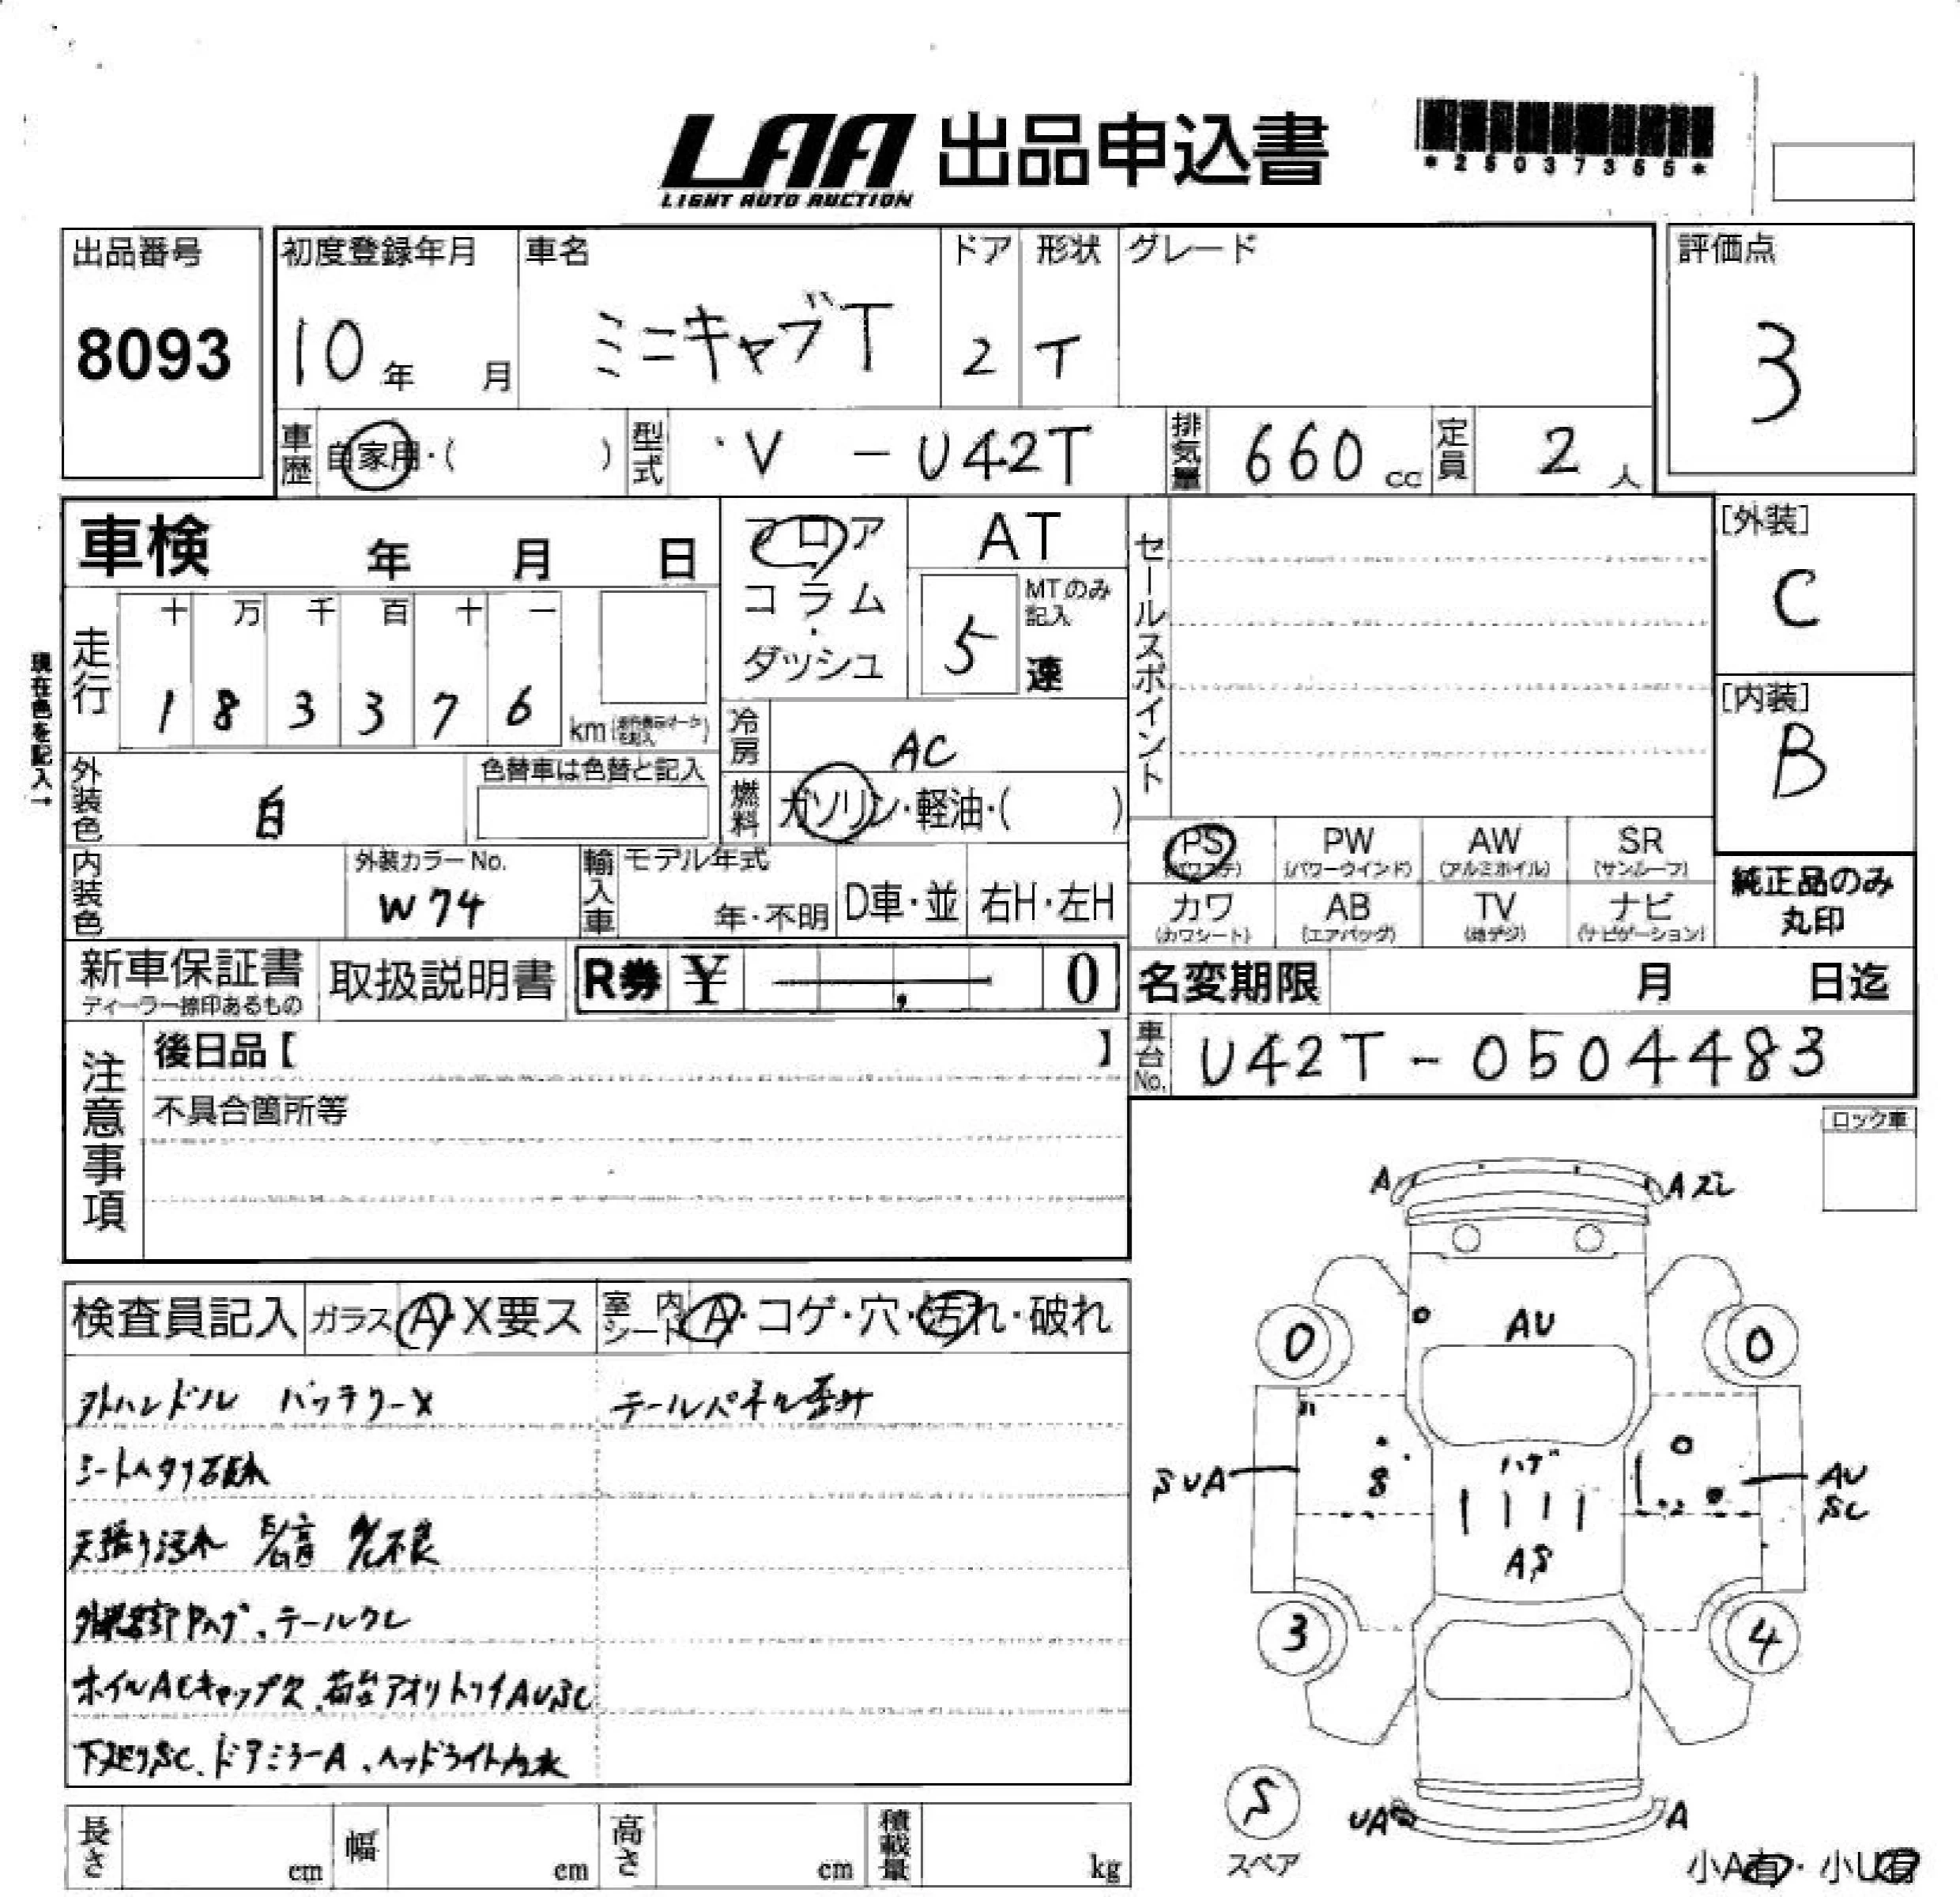 LAA 出品申込書
LIGHT AUTO AUCTION
*25037355*
出品番号
8093
初度登録年月
10年 月
車名
ミニキャブT
ドア
2
形状
T
グレード
評価点
3
車歴 自家用・( )
型式 V - U42T
排気量 660 cc
定員 2 人
車検 年 月 日
フロア
コラム・
ダッシュ
AT
MTのみ記入
5 速
セールスポイント
[外装]
C
[内装]
B
現在色を記入→
走行
十 万 千 百 十 一
1 8 3 3 7 6 km
冷房 AC
外装色 白
色替車は色替と記入
燃料 ガソリン・軽油・( )
PS (パワステ)
PW (パワーウインド)
AW (アルミホイル)
SR (サンルーフ)
カワ (カワシート)
AB (エアバッグ)
TV (地デジ)
ナビ (ナビゲーション)
純正品のみ
丸印
内装色
外装カラーNo.
W74
輸入車
モデル年式
年・不明
D車・並
右H・左H
新車保証書
ディーラー捺印あるもの
取扱説明書
R券 ¥ , 0
名変期限 月 日迄
車台No. U42T-0504483
注意事項
後日品【 】
不具合箇所等
ロック車
検査員記入
ガラス A・X要ス
室内シート A・コゲ・穴・汚れ・破れ
外ハンドル バッテリーX
テールパネル歪み
天張り汚れ
テールワレ
ホイルACキャップ欠、荷台アオリトリイAUSC
下廻りSC、ドアミラーA、ヘッドライト内水
A
A スレ
AU
0
0
SUA
8
ハゲ
AS
AU
SC
3
4
S
スペア
UA
A
小A有・小U有
長さ cm
幅 cm
高さ cm
積載量 kg